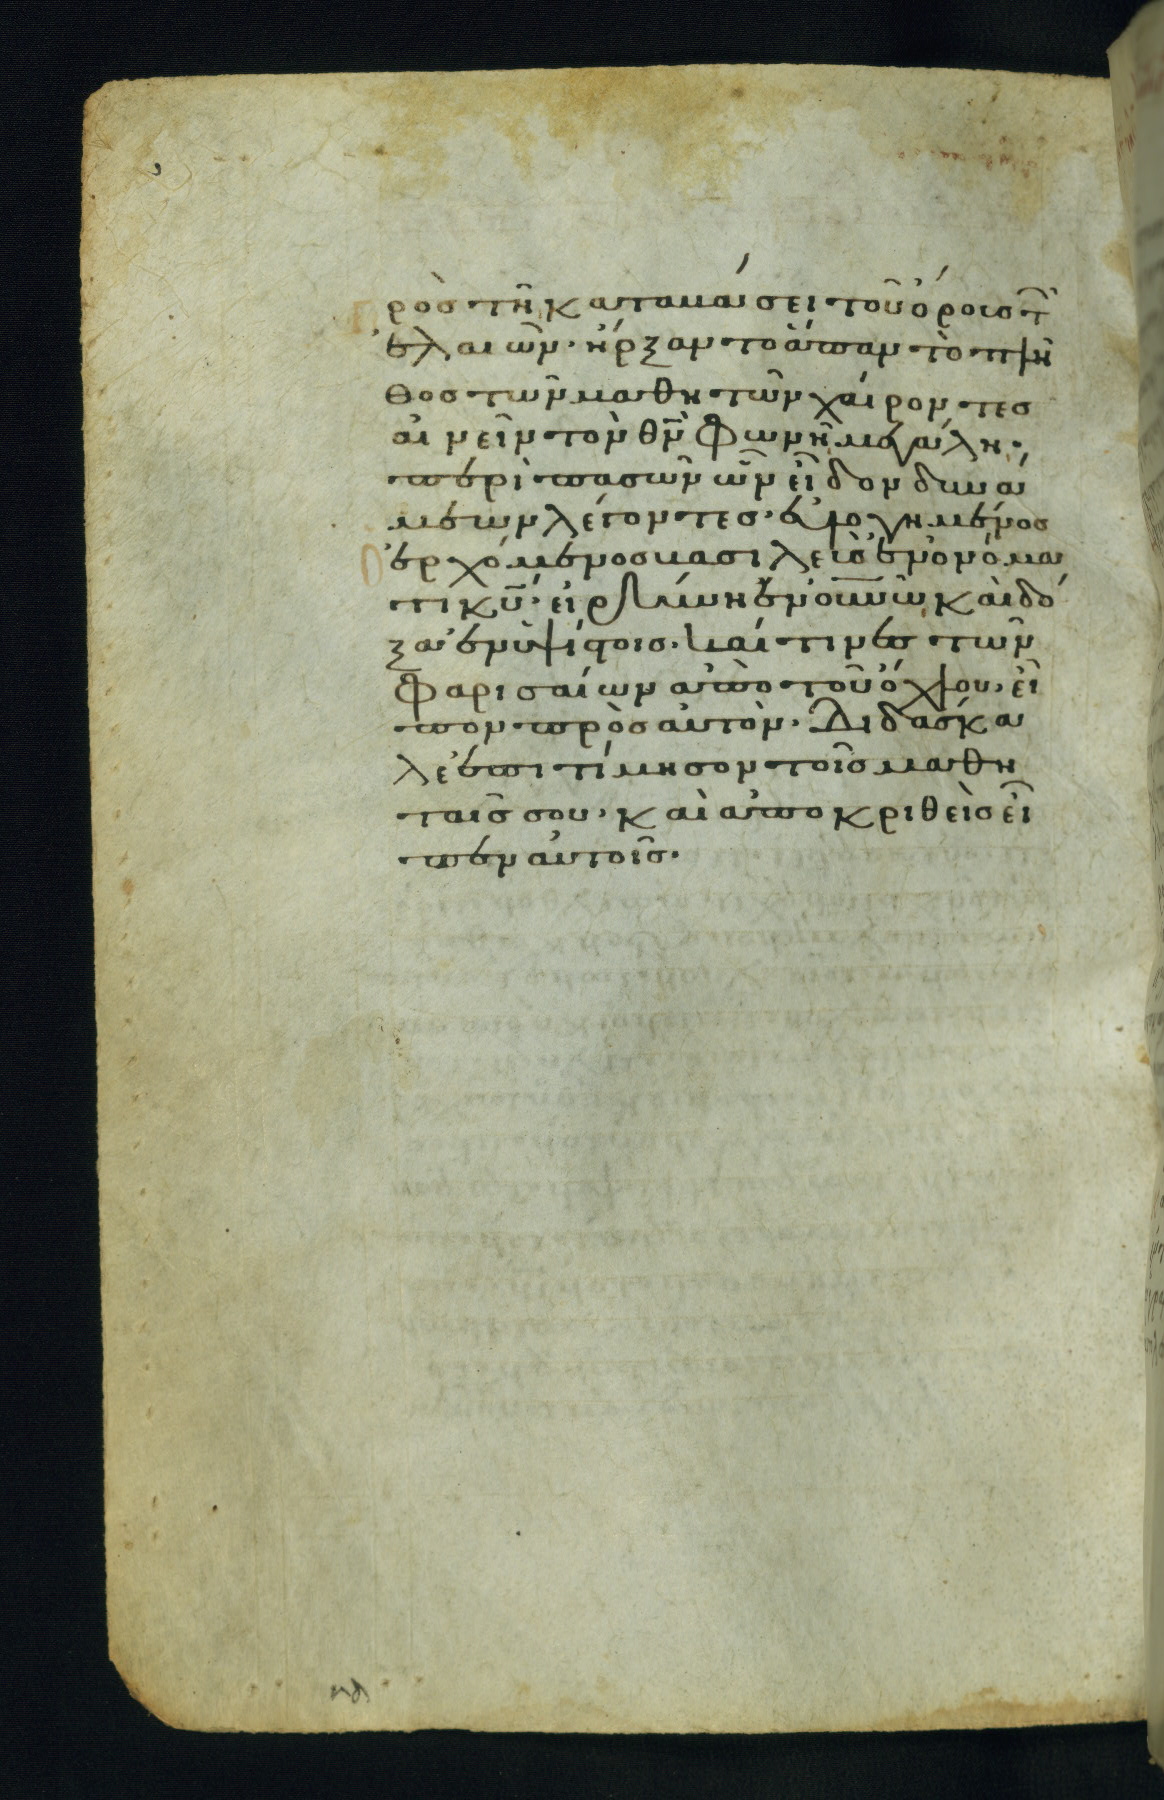 ρὸσ τῆ καταβάσει τοῦ ὄρουσ τῶ
ἐλαιῶν· ἤρξαντο ἅπαν τὸ πλῆ
θοσ τῶν μαθητῶν χαίροντεσ
αἰνεῖν τὸν θν̅ φωνῆ μεγάλη·
περὶ πασῶν ὧν εἶδον δυνά
μεων λέγοντεσ· εὐλογημένοσ
ἐρχόμενοσ βασιλεὺσ ἐν ὀνόμα
τι κυ̅· εἰρήνη ἐν οὐνῶ καὶ δό
ξα ἐν ὑψίστοισ· καί τινεσ τῶν
φαρισαίων ἀπὸ τοῦ ὄχλου, εἶ
πον πρὸσ αὐτὸν· διδάσκα
λε ἐπιτίμησον τοῖσ μαθη
ταῖσ σου, καὶ ἀποκριθεὶσ εἶ
πεν αὐτοῖσ·